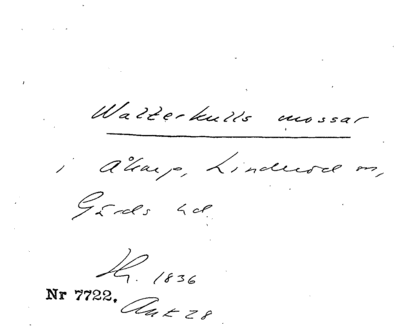 Walterkulls mossar
i Åkarp, Linderöd sn,
Gärds hd
Th. 1836
Nr 7722.
Ark 28